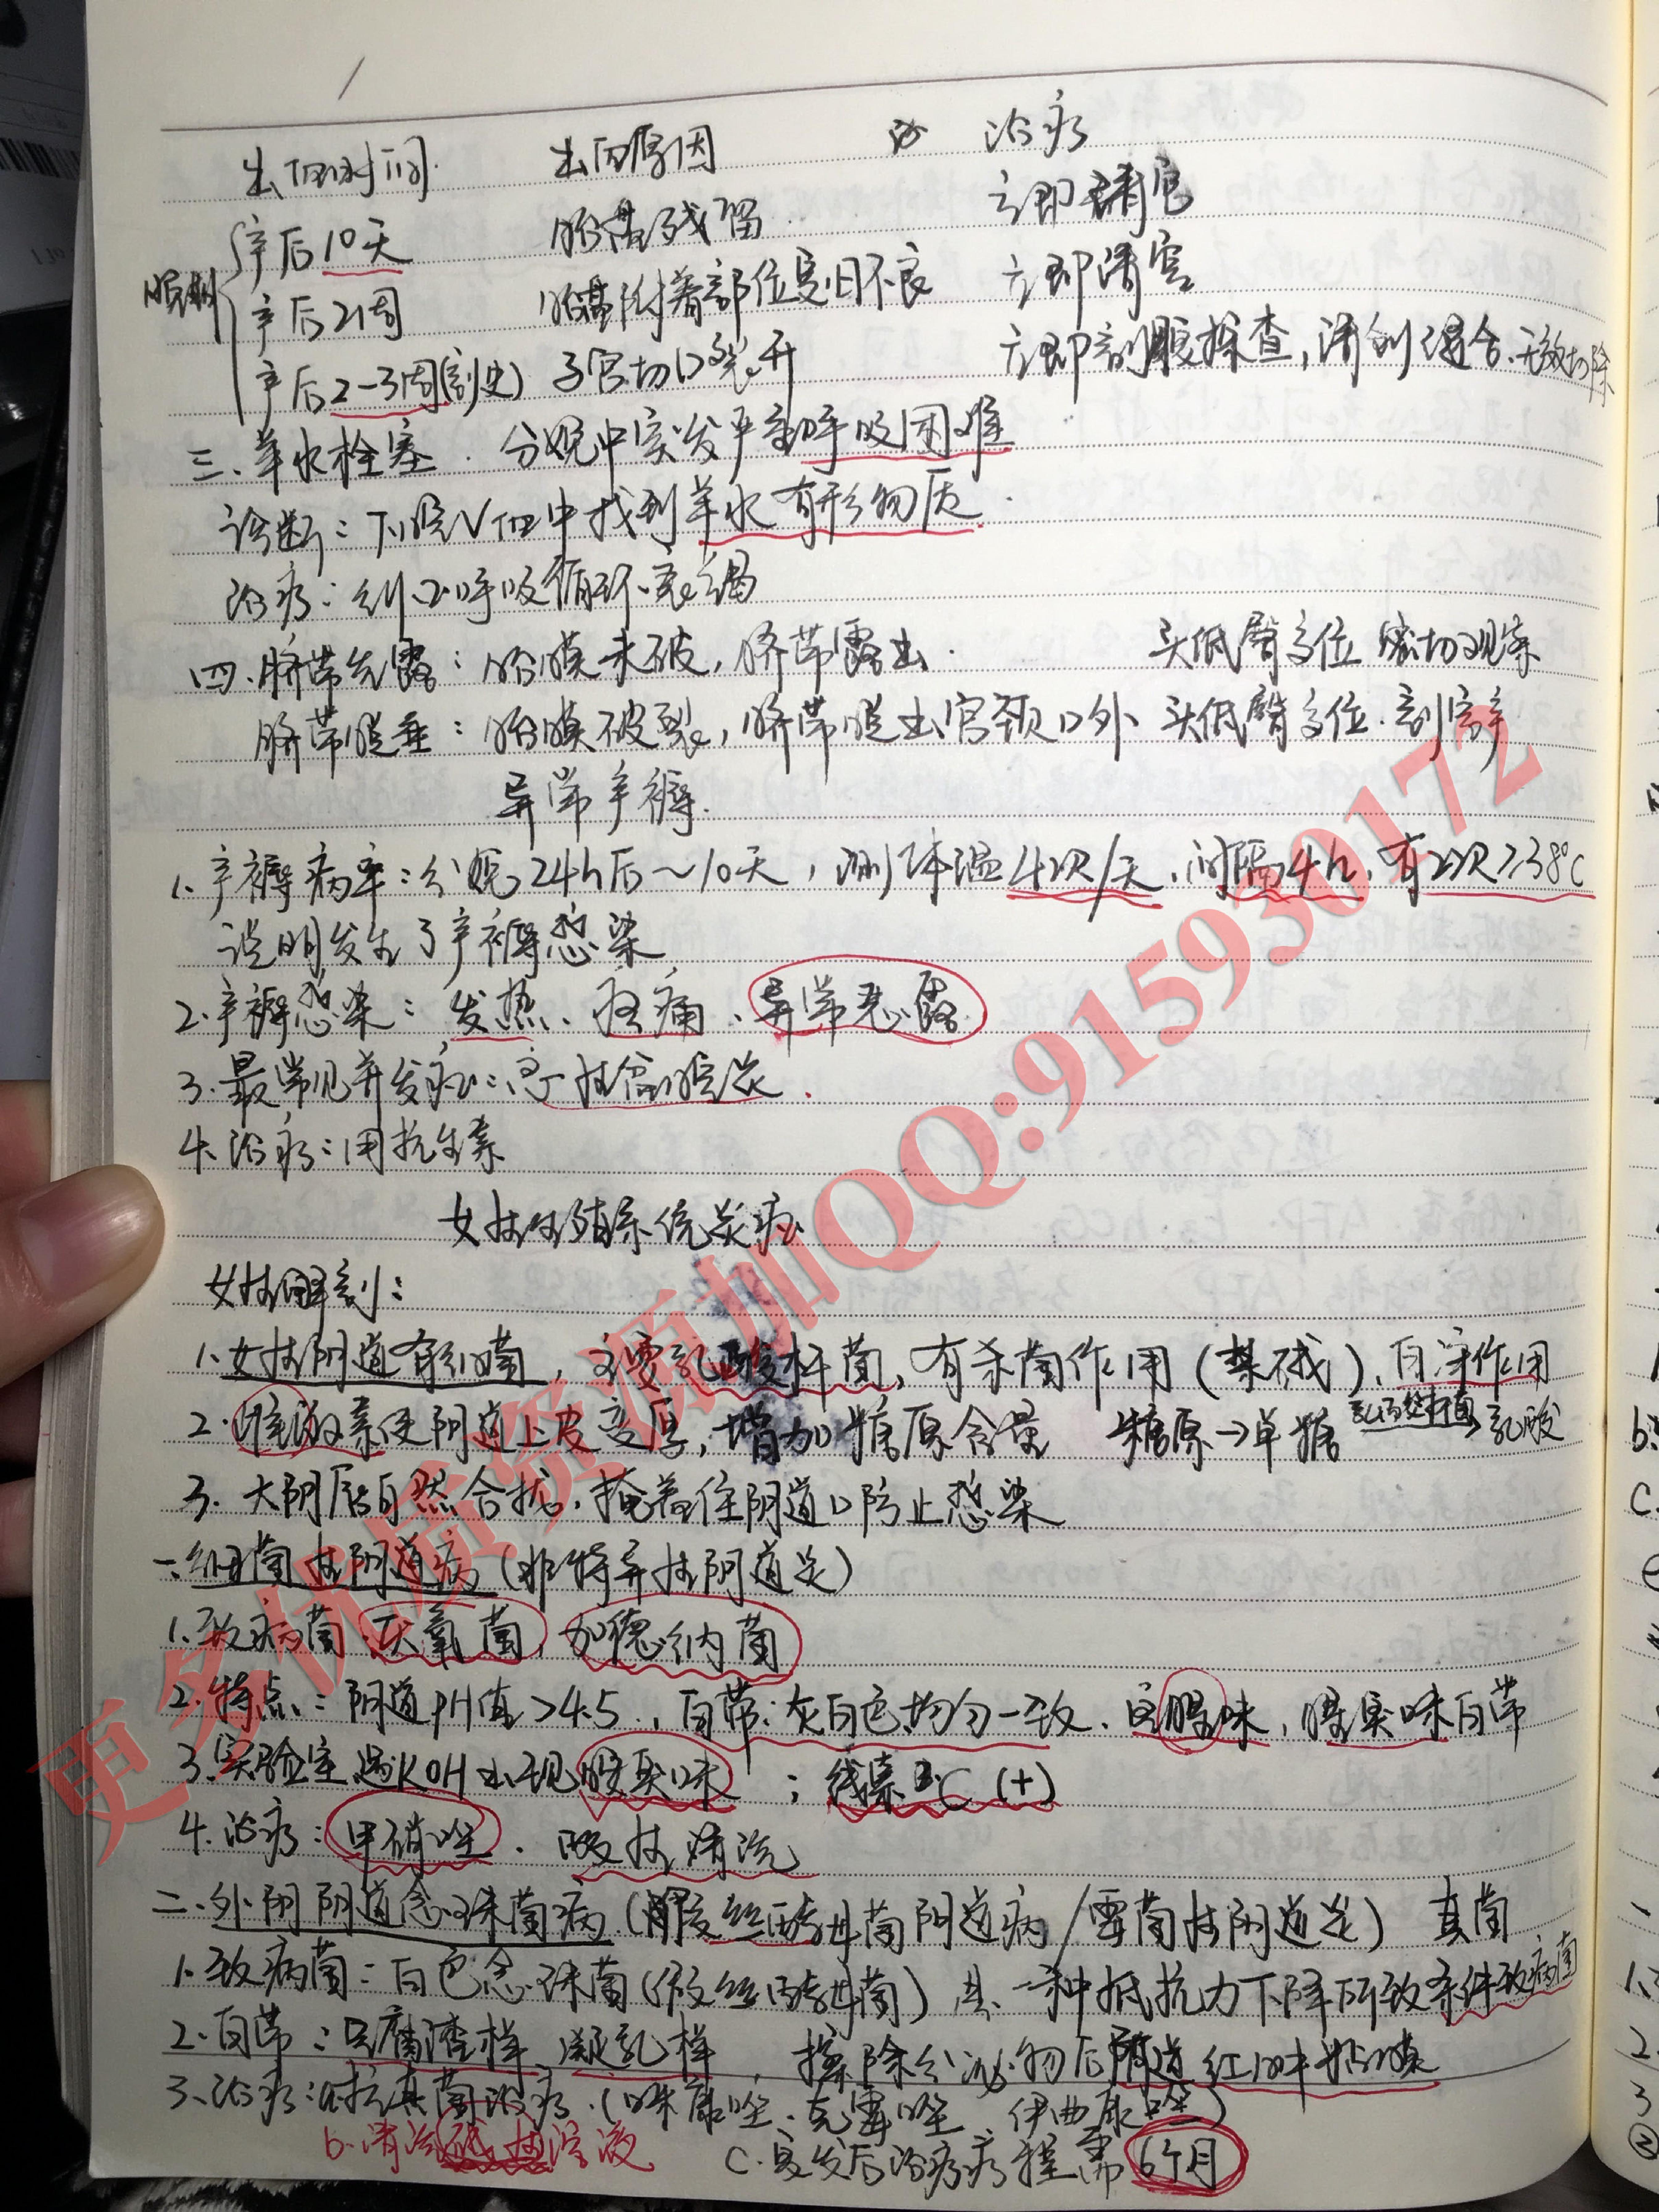 出血时间 出血原因 治疗
晚期 产后10天 胎盘残留 立即清宫
产后2周 胎盘附着部位复旧不良 立即清宫
产后2-3周(剖史) 子宫切口裂开 立即剖腹探查,清创缝合.无效切除
三、羊水栓塞. 分娩中突发严重呼吸困难
诊断:下腔V血中找到羊水有形物质.
治疗:纠正呼吸循环衰竭
四.脐带先露:胎膜未破,脐带露出. 头低臀高位 密切观察
脐带脱垂:胎膜破裂,脐带脱出宫颈口外 头低臀高位.剖宫产
异常产褥.
1.产褥病率:分娩24h后~10天,测体温4次/天,间隔4h,有2次≥38℃
说明发生了产褥感染
2.产褥感染:发热、疼痛、异常恶露
3.最常见并发症:急性盆腔炎.
4.治疗:用抗生素
女性生殖系统炎症
女性解剖:
1.女性阴道有细菌,主要乳酸杆菌,有杀菌作用(禁碱),自净作用
2.雌激素使阴道上皮变厚,增加糖原含量 糖原→单糖 乳酸杆菌 乳酸
3.大阴唇自然合拢.掩盖住阴道口防止感染
一.细菌性阴道病(非特异性阴道炎)
1.致病菌 厌氧菌,加德纳菌
2.特点:阴道PH值>4.5.,白带:灰白色均匀一致、鱼腥味,腥臭味白带
3.实验室 遇KOH出现腥臭味;线索C(+)
4.治疗:甲硝唑.酸性清洗
二.外阴阴道念珠菌病(假丝酵母菌阴道病/霉菌性阴道炎) 真菌
1.致病菌:白色念珠菌(假丝酵母菌)是一种抵抗力下降所致条件致病菌
2.白带:豆腐渣样 凝乳样,擦除分泌物后阴道红肿粘膜
3.治疗:a.抗真菌治疗.(咪康唑.克霉唑 伊曲康唑)
b.清洗碱性溶液 C.复发后治疗疗程需6个月
更多优质资源加QQ:915930172